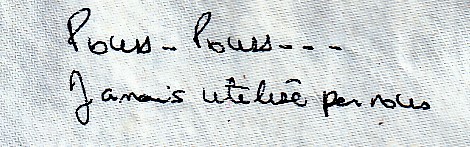 Pouss - Pouss - - -
Jamais utilisé par nous